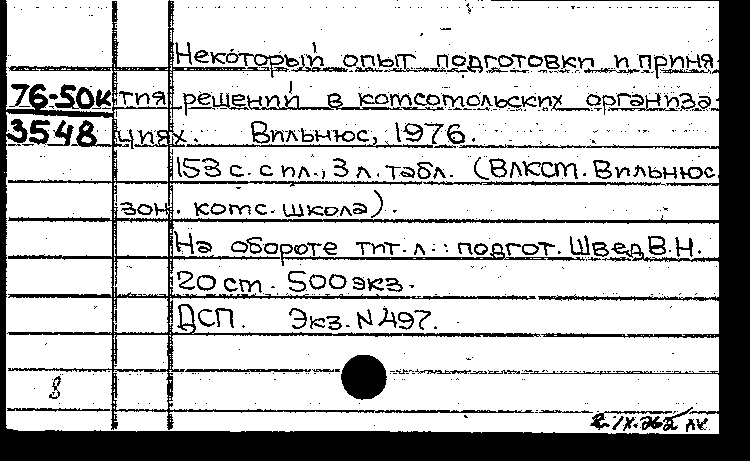 Некоторый опыт подготовки и приня-
76-50к тия решений в комсомольских организа-
3548 циях. Вильнюс, 1976.
153 с. с ил., 3 л. табл. (ВЛКСМ. Вильнюс.
зон. комс. школа).
На обороте тит. л.: подгот. Швед В.Н.
20 см. 500 экз.
ДСП. Экз. N 497.
8